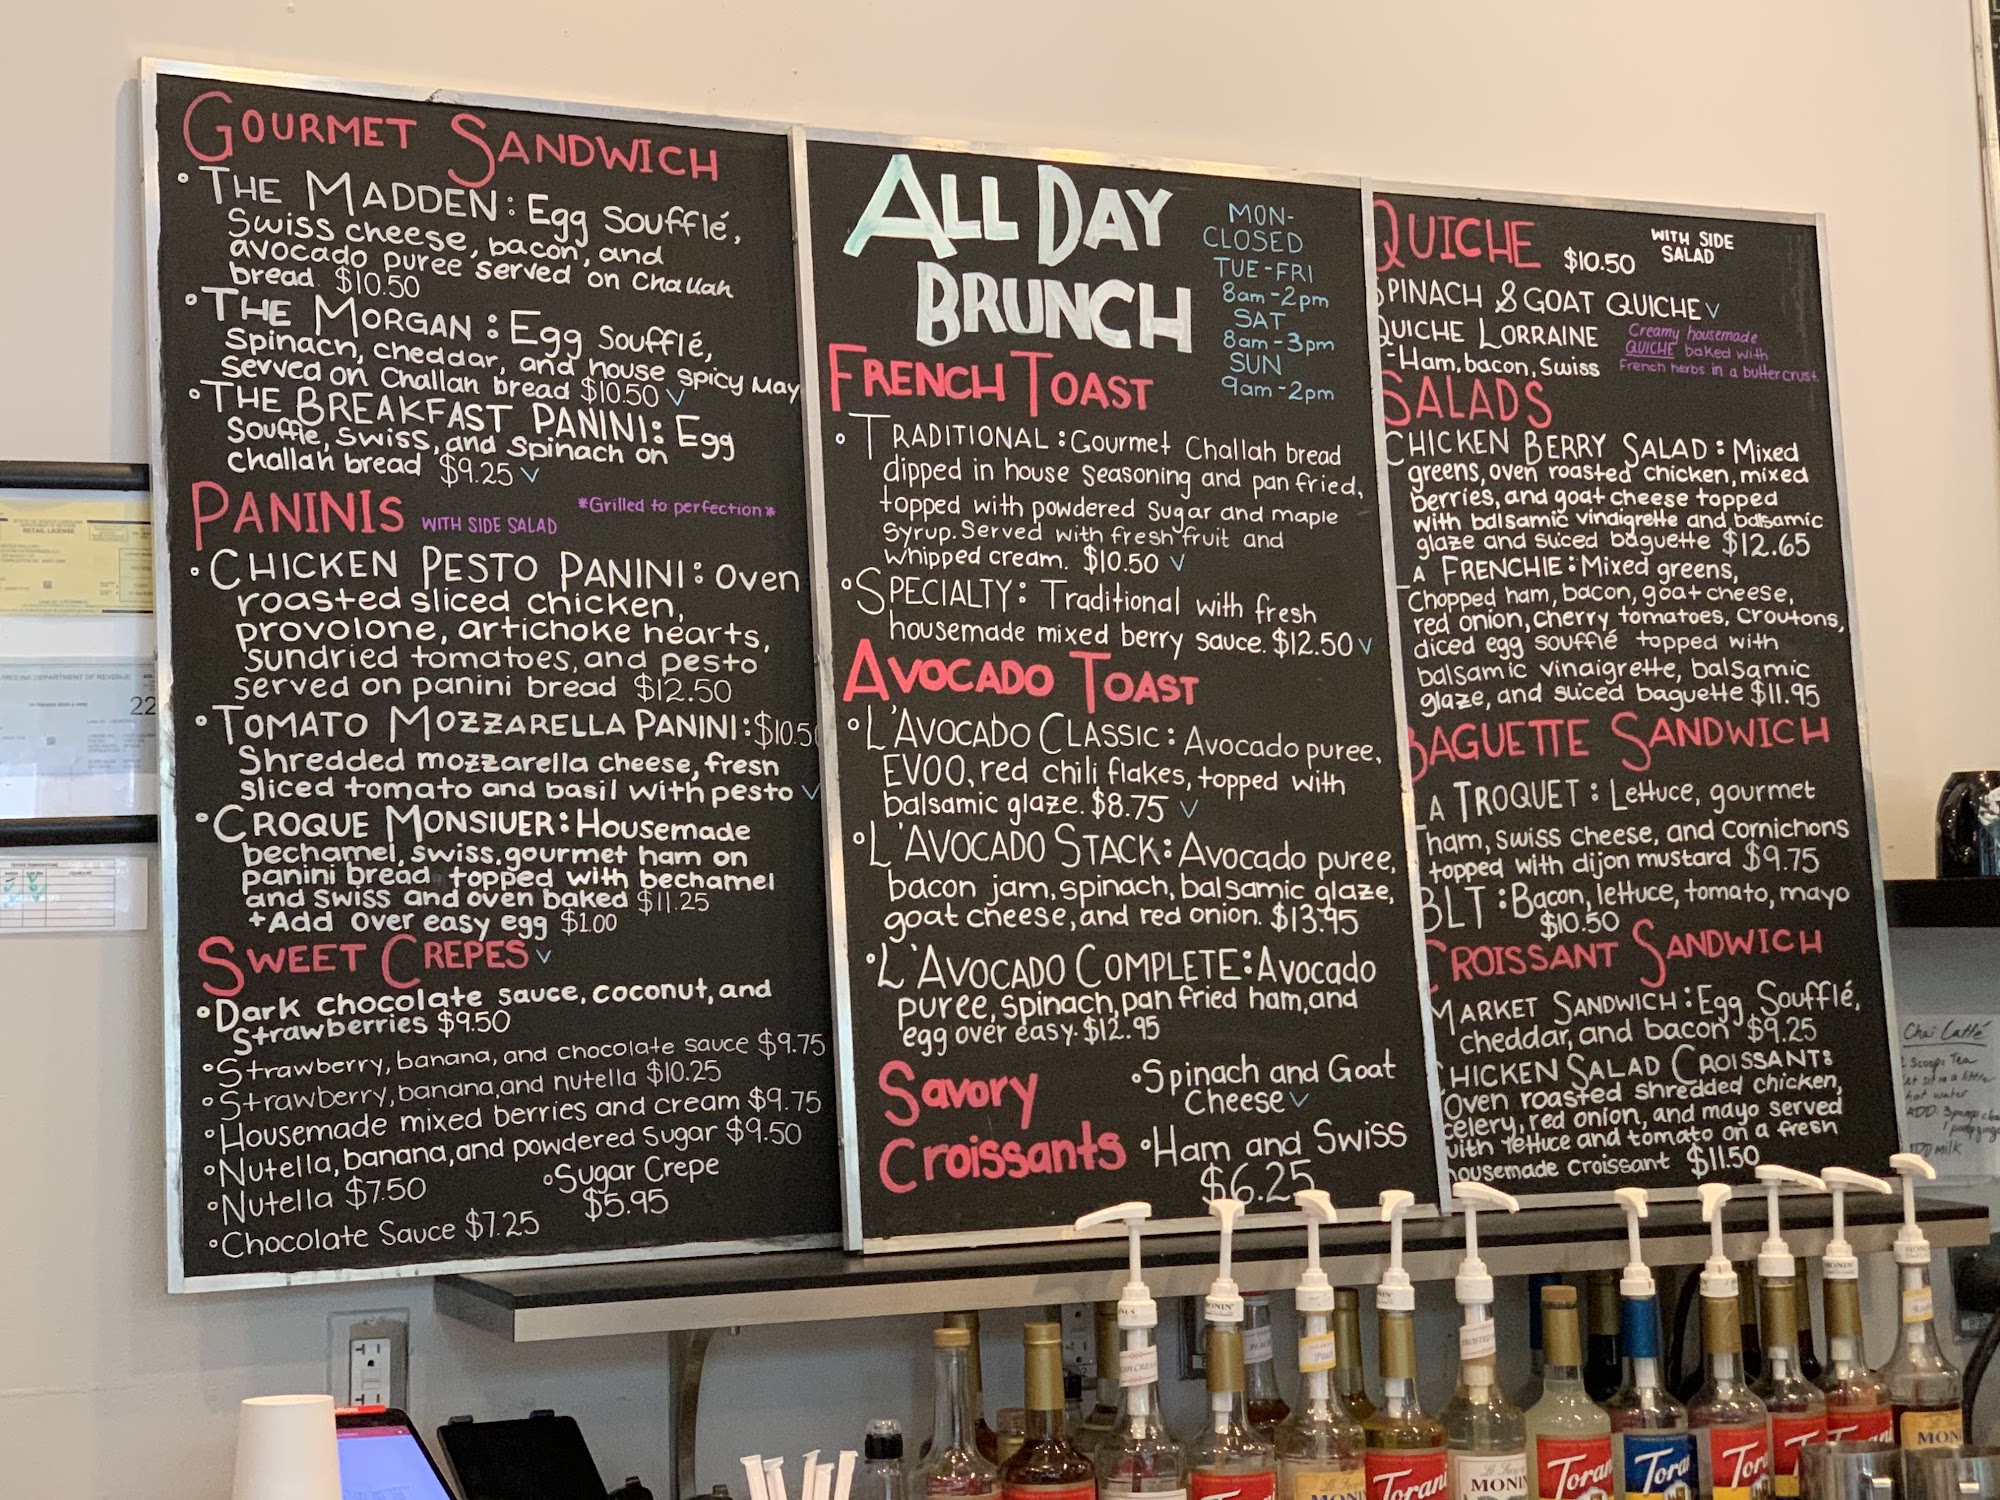 GOURMET SANDWICH
• THE MADDEN: Egg Soufflé,
Swiss cheese, bacon, and
avocado puree served on Challah
bread $10.50
• THE MORGAN: Egg Soufflé,
Spinach, cheddar, and house spicy May
served on Challah bread $10.50 V
• THE BREAKFAST PANINI: Egg
Souffle, Swiss, and Spinach on
Challah bread $9.25 V
PANINIS WITH SIDE SALAD *Grilled to perfection*
• CHICKEN PESTO PANINI: Oven
roasted sliced chicken,
provolone, artichoke hearts,
sundried tomatoes, and pesto
served on panini bread $12.50
• TOMATO MOZZARELLA PANINI: $10.50
Shredded mozzarella cheese, fresh
sliced tomato and basil with pesto V
• CROQUE MONSIUER: Housemade
bechamel, swiss, gourmet ham on
panini bread topped with bechamel
and swiss and oven baked $11.25
+Add over easy egg $1.00
SWEET CREPES V
• Dark chocolate sauce, coconut, and
Strawberries $9.50
• Strawberry, banana, and chocolate sauce $9.75
• Strawberry, banana, and nutella $10.25
• Housemade mixed berries and cream $9.75
• Nutella, banana, and powdered sugar $9.50
• Nutella $7.50
• Sugar Crepe
$5.95
• Chocolate Sauce $7.25
ALL DAY
BRUNCH
MON-
CLOSED
TUE-FRI
8am-2pm
SAT
8am-3pm
SUN
9am-2pm
FRENCH TOAST
• TRADITIONAL: Gourmet Challah bread
dipped in house seasoning and pan fried,
topped with powdered sugar and maple
syrup. Served with fresh fruit and
whipped cream. $10.50 V
• SPECIALTY: Traditional with fresh
housemade mixed berry sauce. $12.50 V
AVOCADO TOAST
• L'AVOCADO CLASSIC: Avocado puree,
EVOO, red chili flakes, topped with
balsamic glaze. $8.75 V
• L'AVOCADO STACK: Avocado puree,
bacon jam, spinach, balsamic glaze,
goat cheese, and red onion. $13.95
• L'AVOCADO COMPLETE: Avocado
puree, spinach, pan fried ham, and
egg over easy. $12.95
Savory
Croissants
• Spinach and Goat
Cheese V
• Ham and Swiss
$6.25
QUICHE $10.50 WITH SIDE
SALAD
SPINACH & GOAT QUICHE V
QUICHE LORRAINE
-Ham, bacon, Swiss
Creamy housemade
QUICHE baked with
French herbs in a butter crust.
SALADS
CHICKEN BERRY SALAD: Mixed
greens, oven roasted chicken, mixed
berries, and goat cheese topped
with balsamic vinaigrette and balsamic
glaze and sliced baguette $12.65
A FRENCHIE: Mixed greens,
Chopped ham, bacon, goat cheese,
red onion, cherry tomatoes, croutons,
diced egg soufflé topped with
balsamic vinaigrette, balsamic
glaze, and sliced baguette $11.95
BAGUETTE SANDWICH
A TROQUET: Lettuce, gourmet
ham, swiss cheese, and cornichons
topped with dijon mustard $9.75
BLT: Bacon, lettuce, tomato, mayo
$10.50
CROISSANT SANDWICH
MARKET SANDWICH: Egg Soufflé,
cheddar, and bacon $9.25
CHICKEN SALAD CROISSANT:
Oven roasted shredded chicken,
celery, red onion, and mayo served
with lettuce and tomato on a fresh
housemade croissant $11.50
RETAIL LICENSE
CAROLINA DEPARTMENT OF REVENUE
22
Chai Latté
Scoops Tea
hot water
milk
Torani
Torani
Torani
Torani
MONIN
MONIN